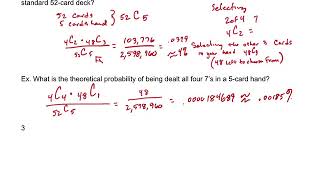 standard 52-card deck?
52 cards
5 cards hand } 52C5
Selecting
2 of 4 7
4C2 =
4C2 · 48C3 / 52C5 = 103,776 / 2,598,960 = .0399
≈ 4%
Selecting the other 3 cards
in your hand 48C3
(48 left to choose from)
Ex. What is the theoretical probability of being dealt all four 7's in a 5-card hand?
4C4 · 48C1 / 52C5 = 48 / 2,598,960 = .0000184689 ≈ .00185%
3